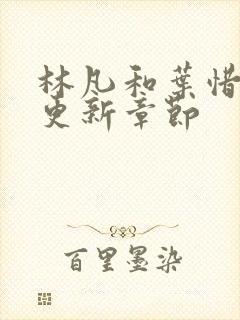 林凡和葉惜
更新章節
百里墨染